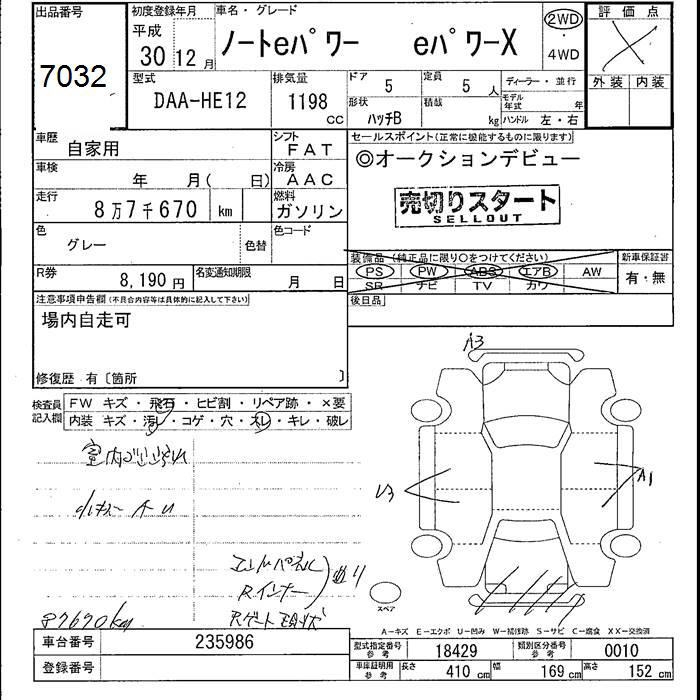 出品番号
7032
初度登録年月
平成
30 12月
車名・グレード
ノートeパワー eパワーX
2WD
・
4WD
評価点
外装 内装
型式
DAA-HE12
排気量
1198
cc
ドア
5
定員
5 人
ディーラー・並行
形状
ハッチB
積載
kg
モデル年式
年
ハンドル 左・右
車歴
自家用
シフト
FAT
車検
年 月( 日)
冷房
AAC
走行
8万7千670 km
燃料
ガソリン
色
グレー
色替
色コード
R券
8,190 円
名変通知期限
月 日
セールスポイント(正常に機能するものに限ります)
◎オークションデビュー
売切りスタート
SELLOUT
装備品(純正品に限り○をつけてください)
PS PW ABS エアB AW
SR ナビ TV カワ
新車保証書
有・無
後日品
注意事項申告欄(不具合内容等は具体的に記入して下さい)
場内自走可
修復歴 有〔箇所 〕
検査員記入欄
FW キズ・飛石・ヒビ割・リペア跡・×要
内装 キズ・汚レ・コゲ・穴・スレ・キレ・破レ
A3
U3
A1
Rインナー
87670km
スペア
A−キズ E−エクボ U−凹み W−補修跡 S−サビ C−腐食 XX−交換済
車台番号
235986
登録番号
型式指定番号
参考
18429
類別区分番号
参考
0010
車庫証明用
参考
長さ
410 cm
幅
169 cm
高さ
152 cm